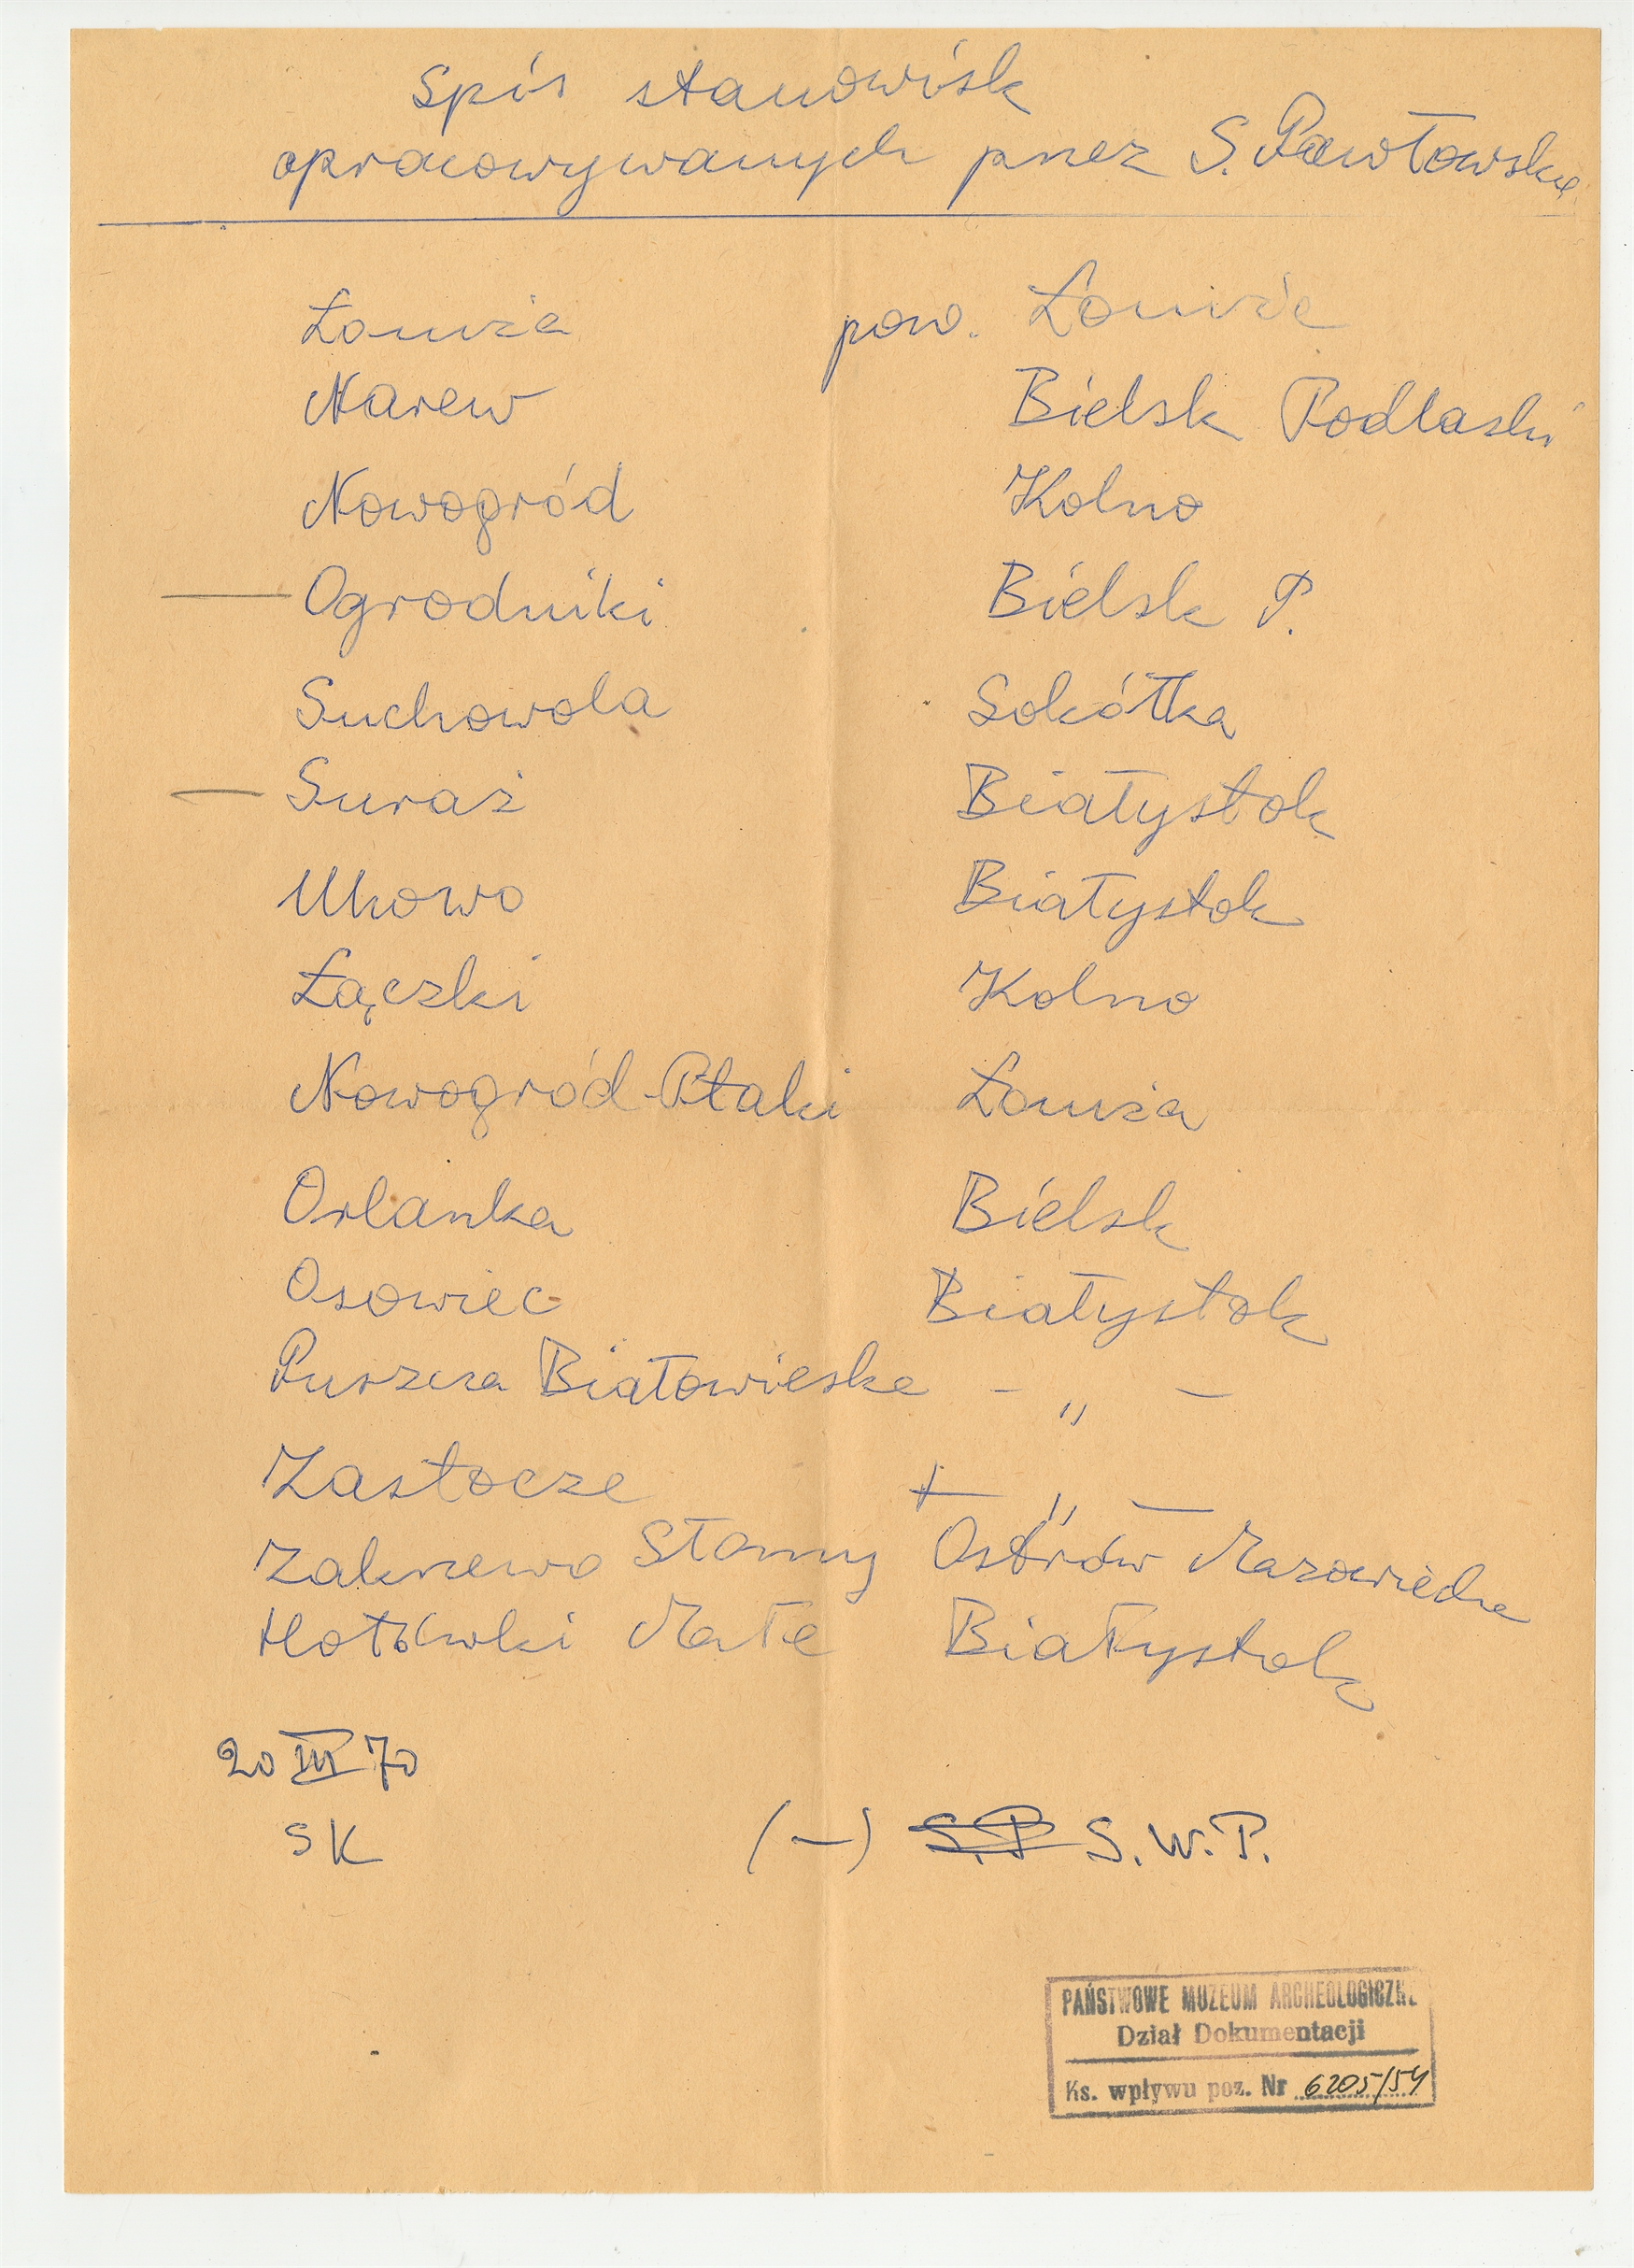 Spis stanowisk
opracowywanych przez S. Pawłowską
Łomża pow. Łomża
Narew Bielsk Podlaski
Nowogród Kolno
Ogrodniki Bielsk P.
Suchowola Sokółka
Suraż Białystok
Uhowo Białystok
Łączki Kolno
Nowogród-Ptaki Łomża
Orlanka Bielsk
Osowiec Białystok
Puszcza Białowieska - „ -
Zastocze — „ —
Zakrzewo Słomy Ostrów Mazowiecka
Hołówki Małe Białystok
20 III 70
SK (—) S.P S. W. P.
PAŃSTWOWE MUZEUM ARCHEOLOGICZNE
Dział Dokumentacji
Ks. wpływu poz. Nr 6205/54